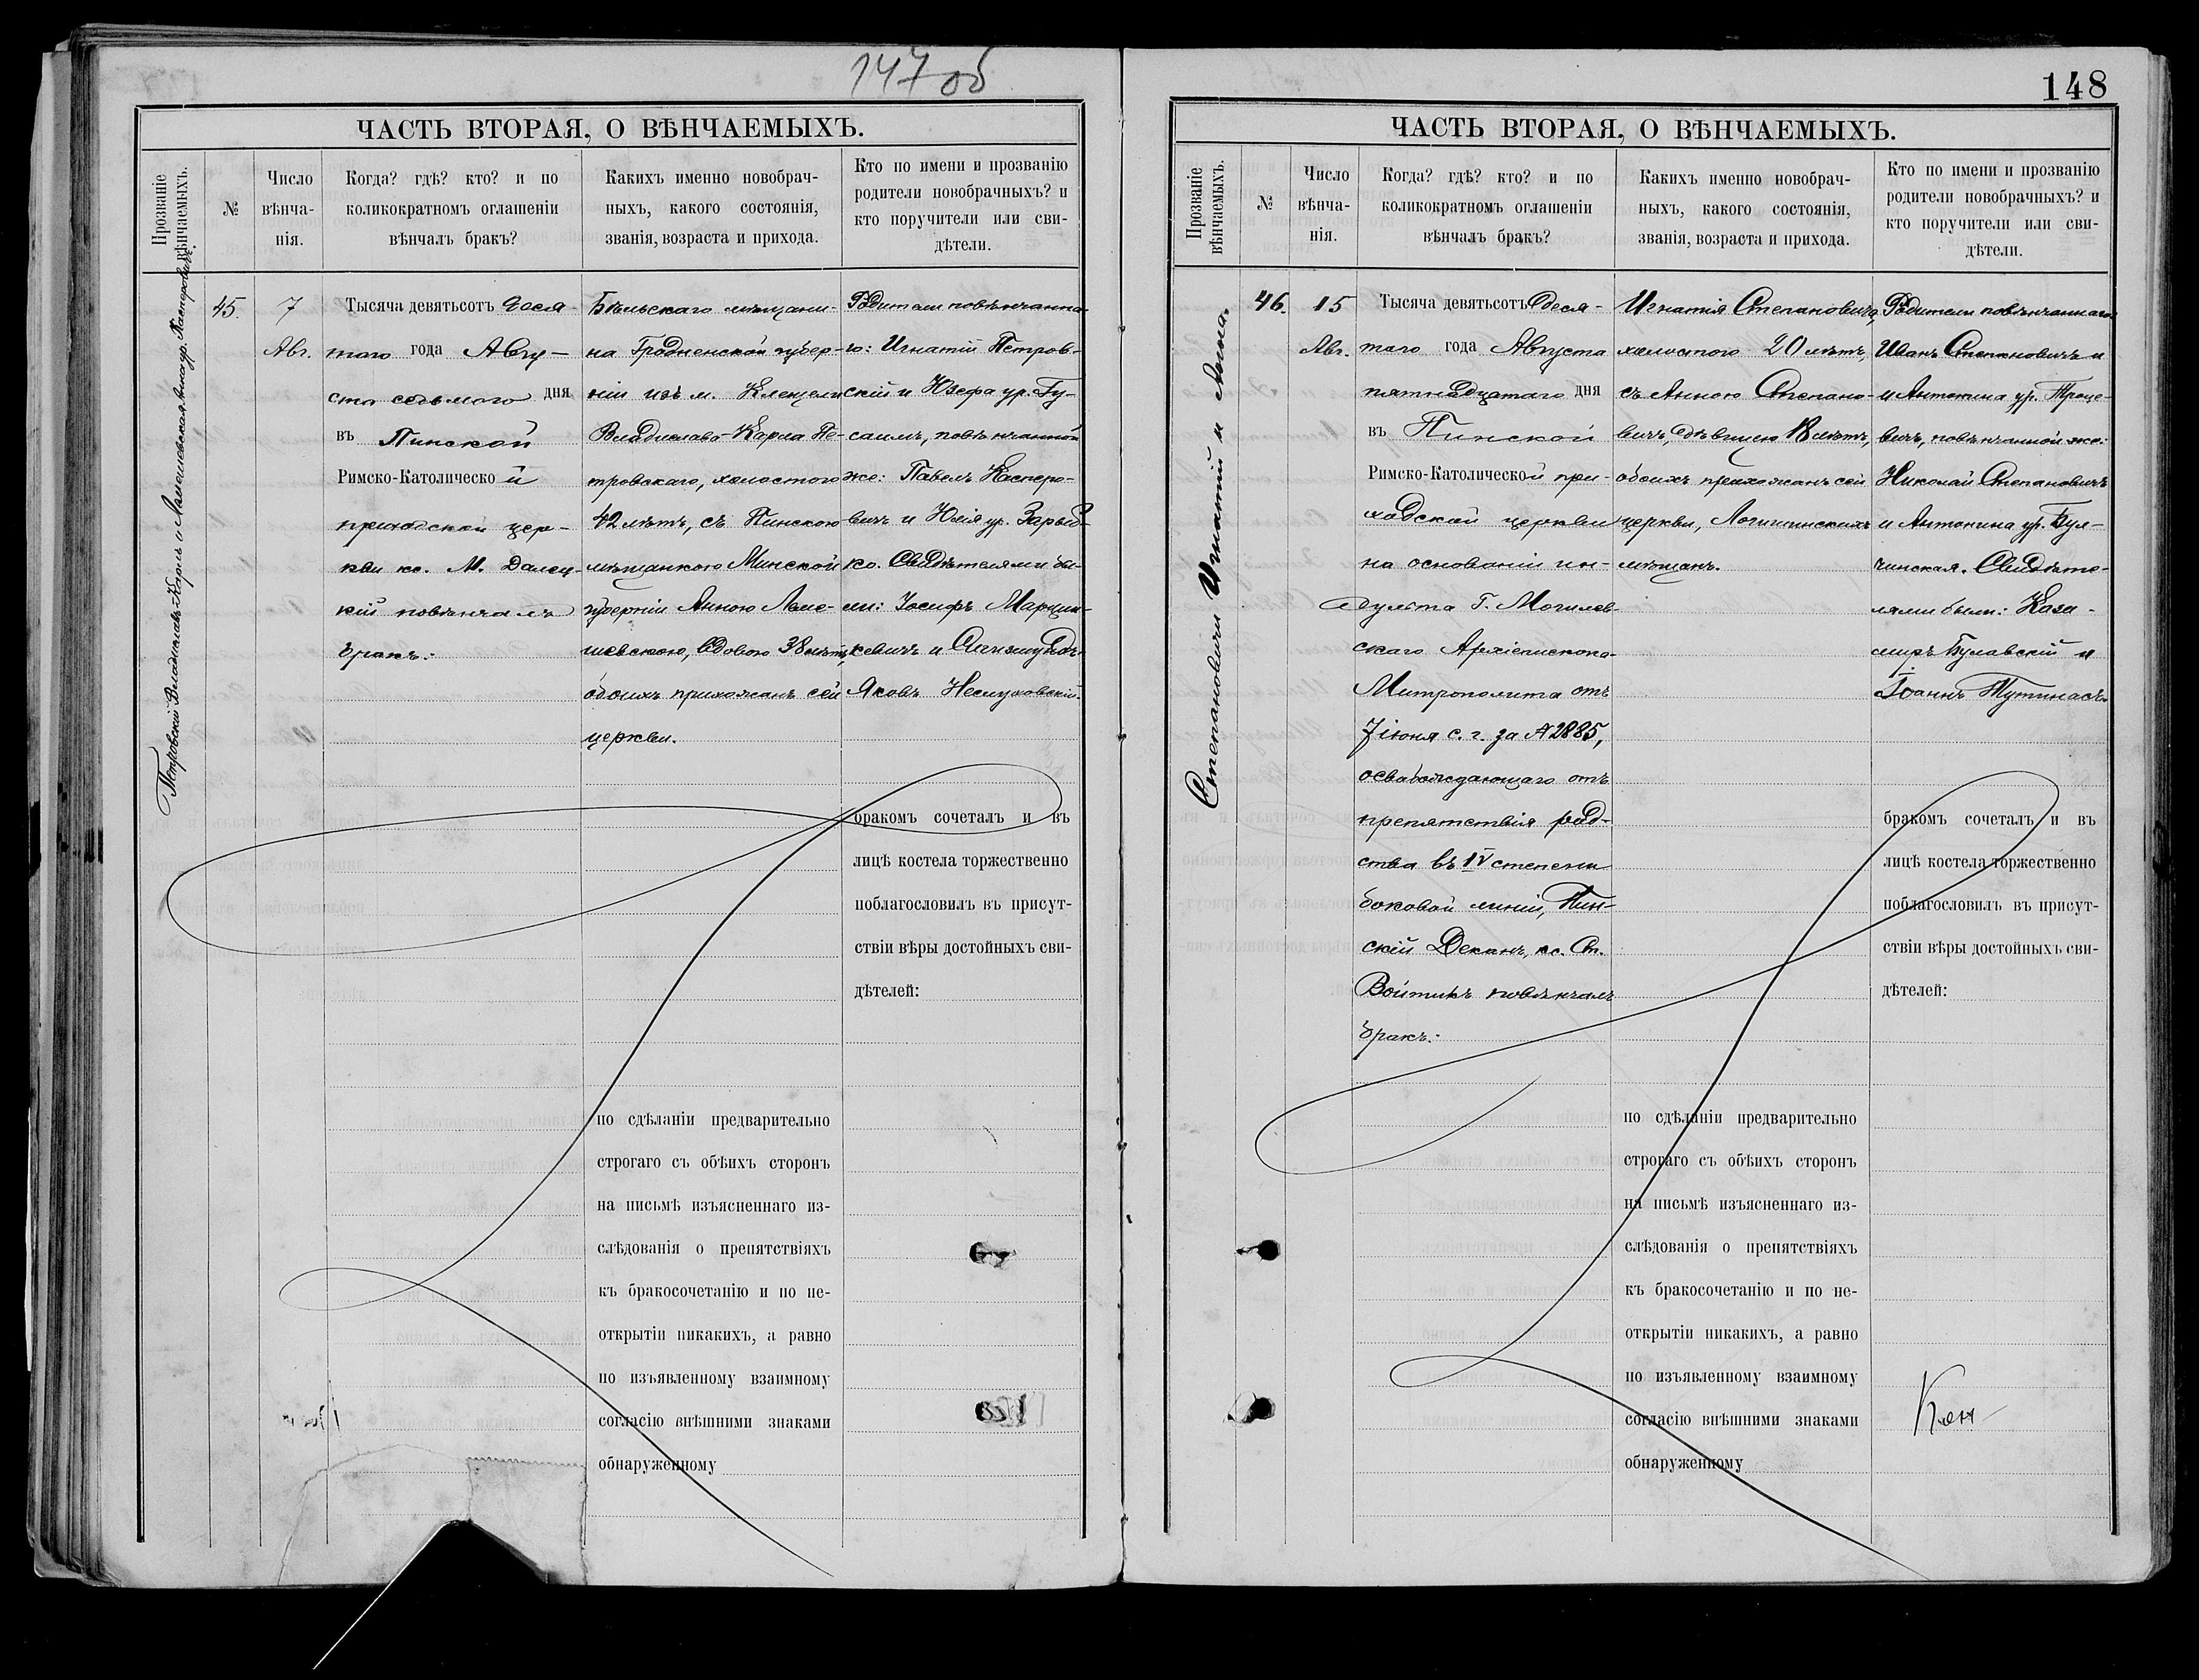 147 об
ЧАСТЬ ВТОРАЯ, О ВѢНЧАЕМЫХЪ.
Прозваніе
вѣнчаемыхъ.
№
Число
вѣнча-
нія.
Когда? гдѣ? кто? и по
коликократномъ оглашеніи
вѣнчалъ бракъ?
Какихъ именно новобрач-
ныхъ, какого состоянія,
званія, возраста и прихода.
Кто по имени и прозванію
родители новобрачныхъ? и
кто поручители или сви-
дѣтели.
Петровскій Владиславъ-Карлъ и Лемешевская Анна ур. Касперовичъ
45.
7
Авг.
Тысяча девятьсотъ деся-
таго года Авгу-
ста седьмого дня
въ Пинской
Римско-Католической
приходской цер-
кви кс. М. Далец-
кій повѣнчалъ
бракъ:
Бѣльскаго мѣщани-
на Гродненской губер-
ніи изъ м. Клещели
Владислава-Карла Пе-
тровскаго, холостого
42 лѣтъ, съ Пинскою
мѣщанкою Минской
губерніи Анною Леме-
шевскою, вдовою 38 лѣтъ,
обоихъ прихожанъ сей
церкви.
Родители повѣнчанна-
го: Игнатій Петров-
скій и Юзефа ур. Гу-
саимъ, повѣнчанной
же: Павелъ Касперо-
вичъ и Юлія ур. Зарыд-
ко. Свидѣтелями бы-
ли: Іосифъ Марцин-
кевичъ и Сигизмундъ-
Яковъ Неслуховскій.
бракомъ сочеталъ и въ
лицѣ костела торжественно
поблагословилъ въ присут-
ствіи вѣры достойныхъ сви-
дѣтелей:
по сдѣланіи предварительно
строгаго съ обѣихъ сторонъ
на письмѣ изъясненнаго из-
слѣдованія о препятствіяхъ
къ бракосочетанію и по не-
открытіи никакихъ, а равно
по изъявленному взаимному
согласію внѣшними знаками
обнаруженному
148
ЧАСТЬ ВТОРАЯ, О ВѢНЧАЕМЫХЪ.
Прозваніе
вѣнчаемыхъ.
№
Число
вѣнча-
нія.
Когда? гдѣ? кто? и по
коликократномъ оглашеніи
вѣнчалъ бракъ?
Какихъ именно новобрач-
ныхъ, какого состоянія,
званія, возраста и прихода.
Кто по имени и прозванію
родители новобрачныхъ? и
кто поручители или сви-
дѣтели.
Степановичи Игнатій и Анна.
46.
15
Авг.
Тысяча девятьсотъ деся-
таго года Августа
пятнадцатаго дня
въ Пинской
Римско-Католической при-
ходской церкви
на основаніи ин-
дульта Г. Могилев-
скаго Архіепископа-
Митрополита отъ
7 іюня с. г. за № 2885,
освобождающаго отъ
препятствія род-
ства въ IV степени
боковой линіи, Пин-
скій Деканъ, кс. Ст.
Войтикъ повѣнчалъ
бракъ:
Игнатія Степановича,
холостого 20 лѣтъ,
съ Анною Степано-
вичъ, дѣвицею 18 лѣтъ,
обоихъ прихожанъ сей
церкви, Логишинскихъ
мѣщанъ.
Родители повѣнчаннаго:
Иванъ Степановичъ и
и Антонина ур. Троце-
вичъ, повѣнчанной же:
Николай Степановичъ
и Антонина ур. Бул-
чинская. Свидѣте-
лями были: Кази-
миръ Булавскій и
Іоаннъ Тутинасъ.
бракомъ сочеталъ и въ
лицѣ костела торжественно
поблагословилъ въ присут-
ствіи вѣры достойныхъ сви-
дѣтелей:
по сдѣланіи предварительно
строгаго съ обѣихъ сторонъ
на письмѣ изъясненнаго из-
слѣдованія о препятствіяхъ
къ бракосочетанію и по не-
открытіи никакихъ, а равно
по изъявленному взаимному
согласію внѣшними знаками
обнаруженному